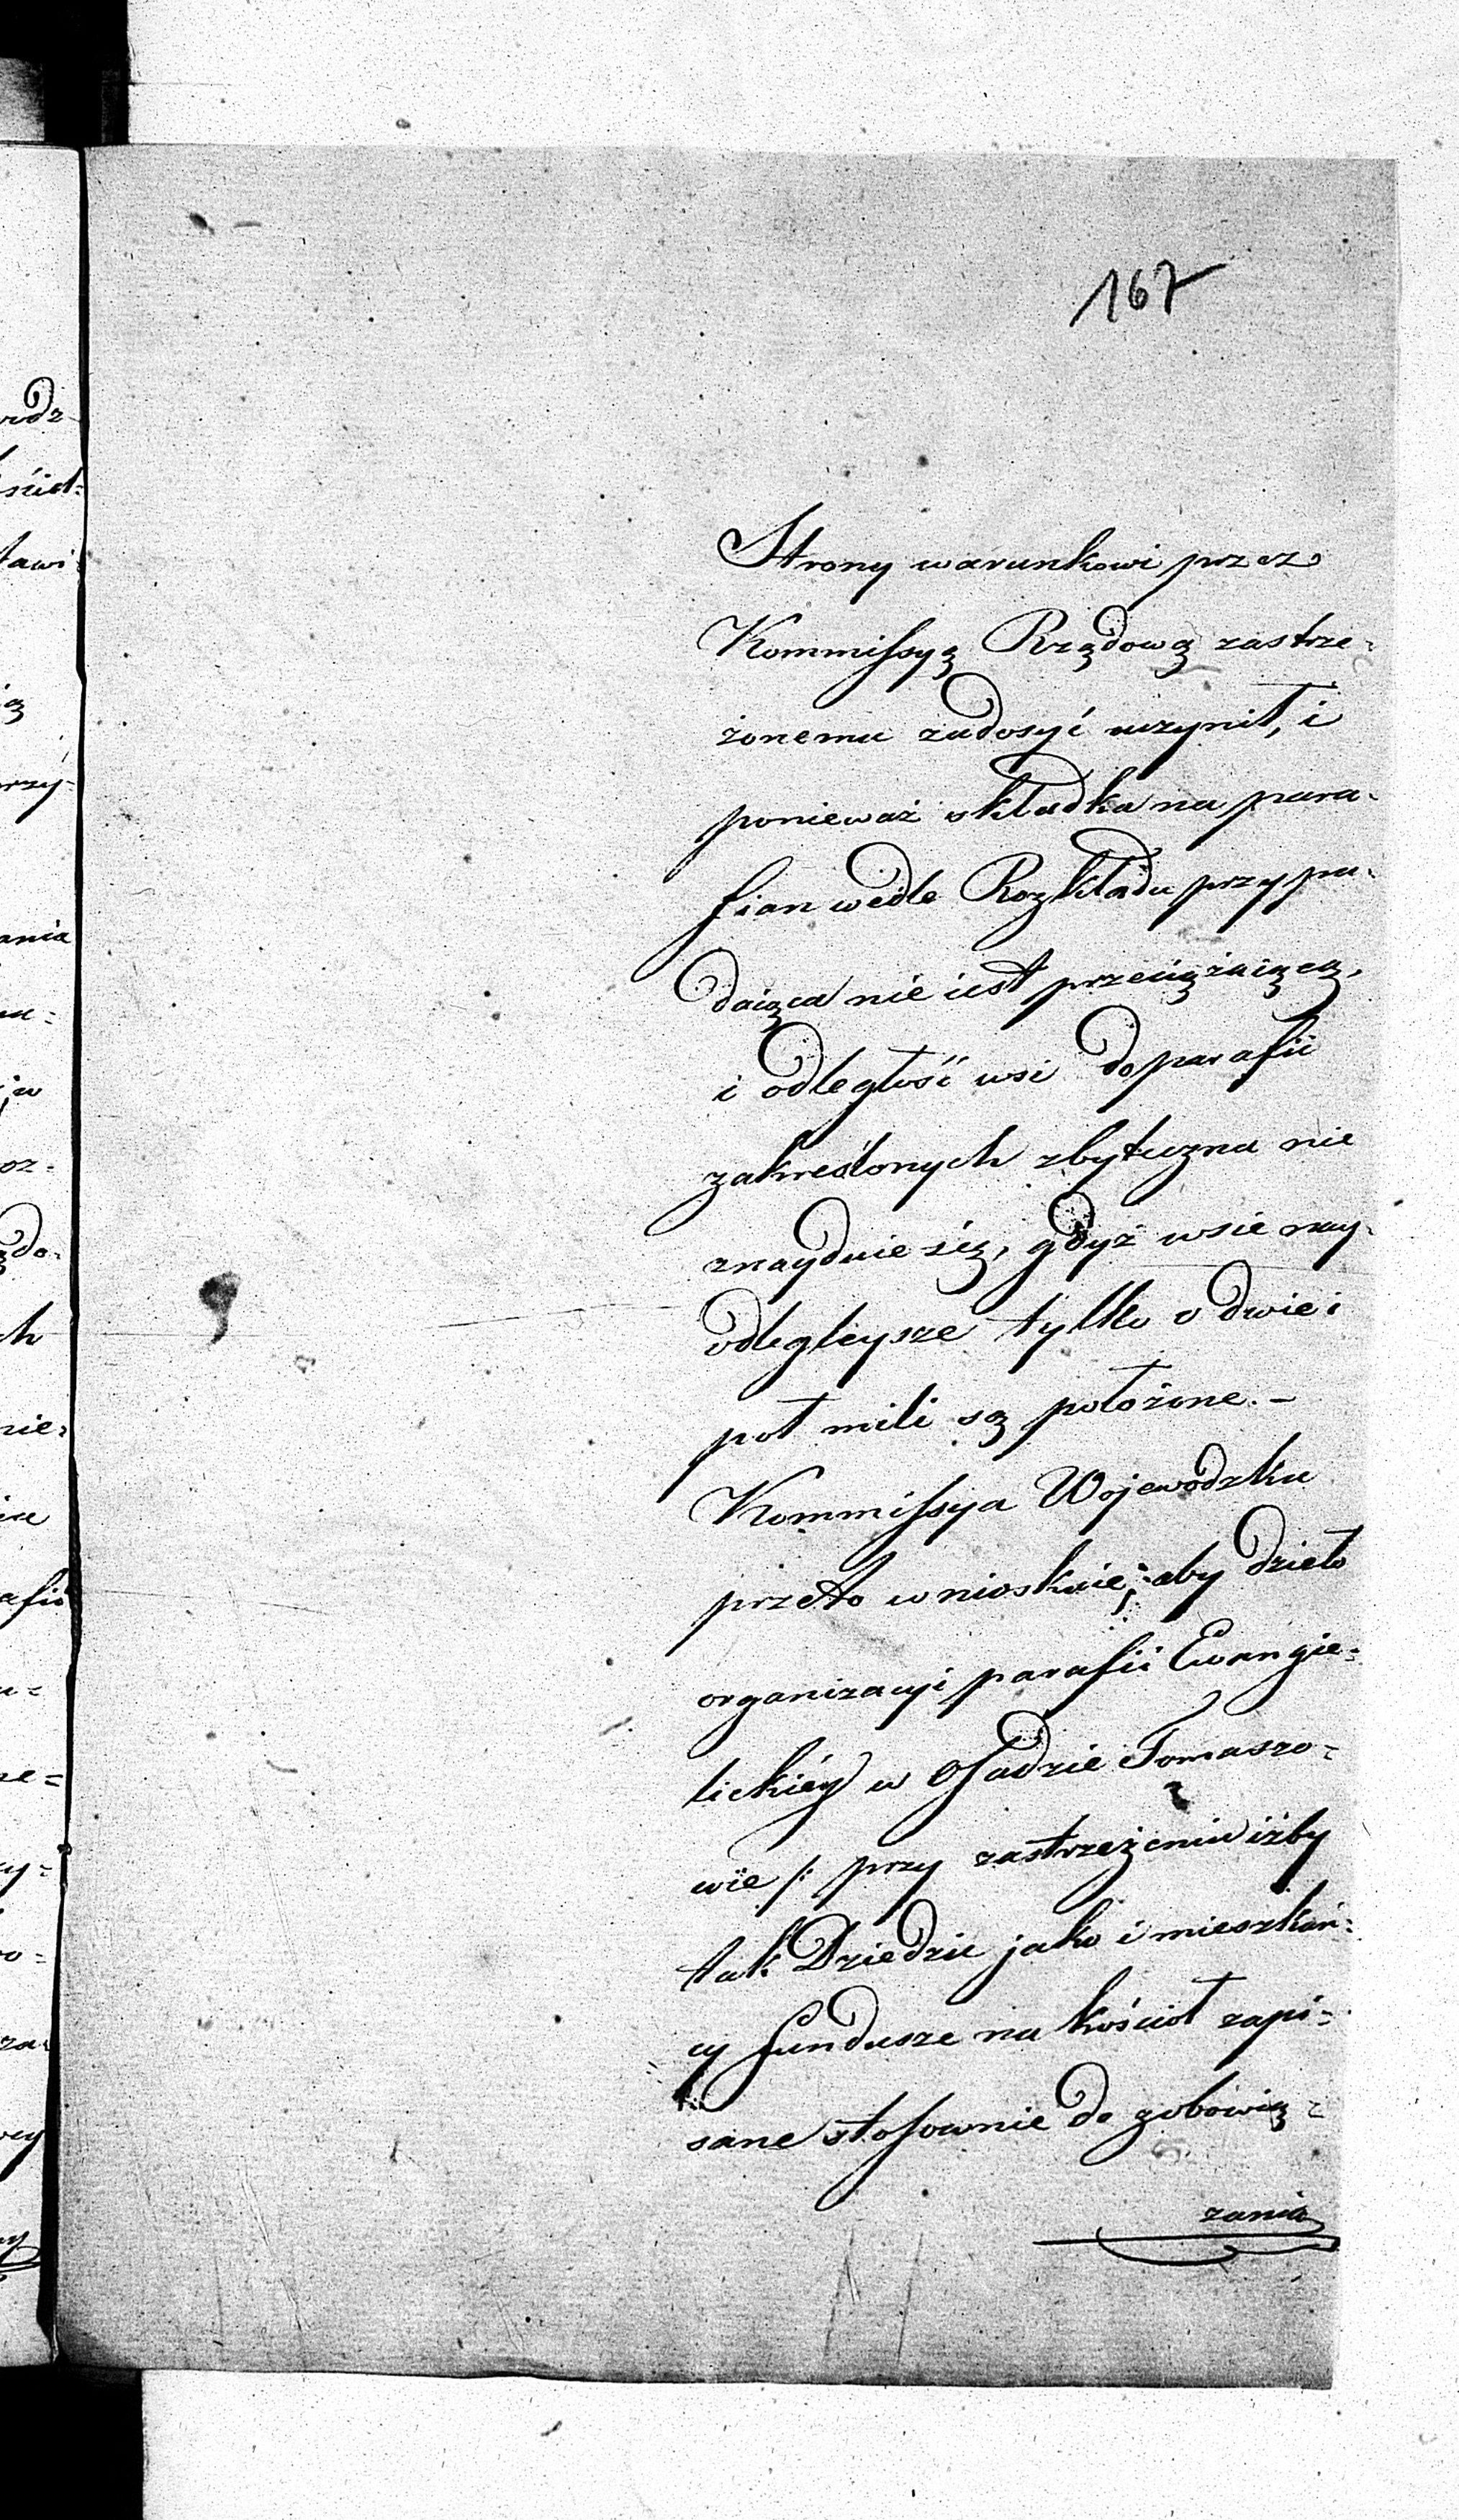 167
Strony warunkowi przez
Kommissyą Rządową zastrze-
żonemu zadosyć uczynił, i
ponieważ składka na para-
fian wedle Rozkładu przypa-
daiąca nie iest przeciążaiącą,
i odległość wsi do parafii
zakreślonych zbyteczna nie
znayduie się, gdyż wsie nay-
odlegleysze tylko o dwie i
pół mili są położone.-
Kommissya Wojewódzka
przeto wnioskuie; aby dzieło
organizacyi parafii Ewangie-
lickiéy w Osadzie Tomaszo-
wie /: przy zastrzeżeniu iżby
tak Dziedzic jako i mieszkań-
cy fundusze na kościół zapi-
sane stosownie do zobowią-
zania